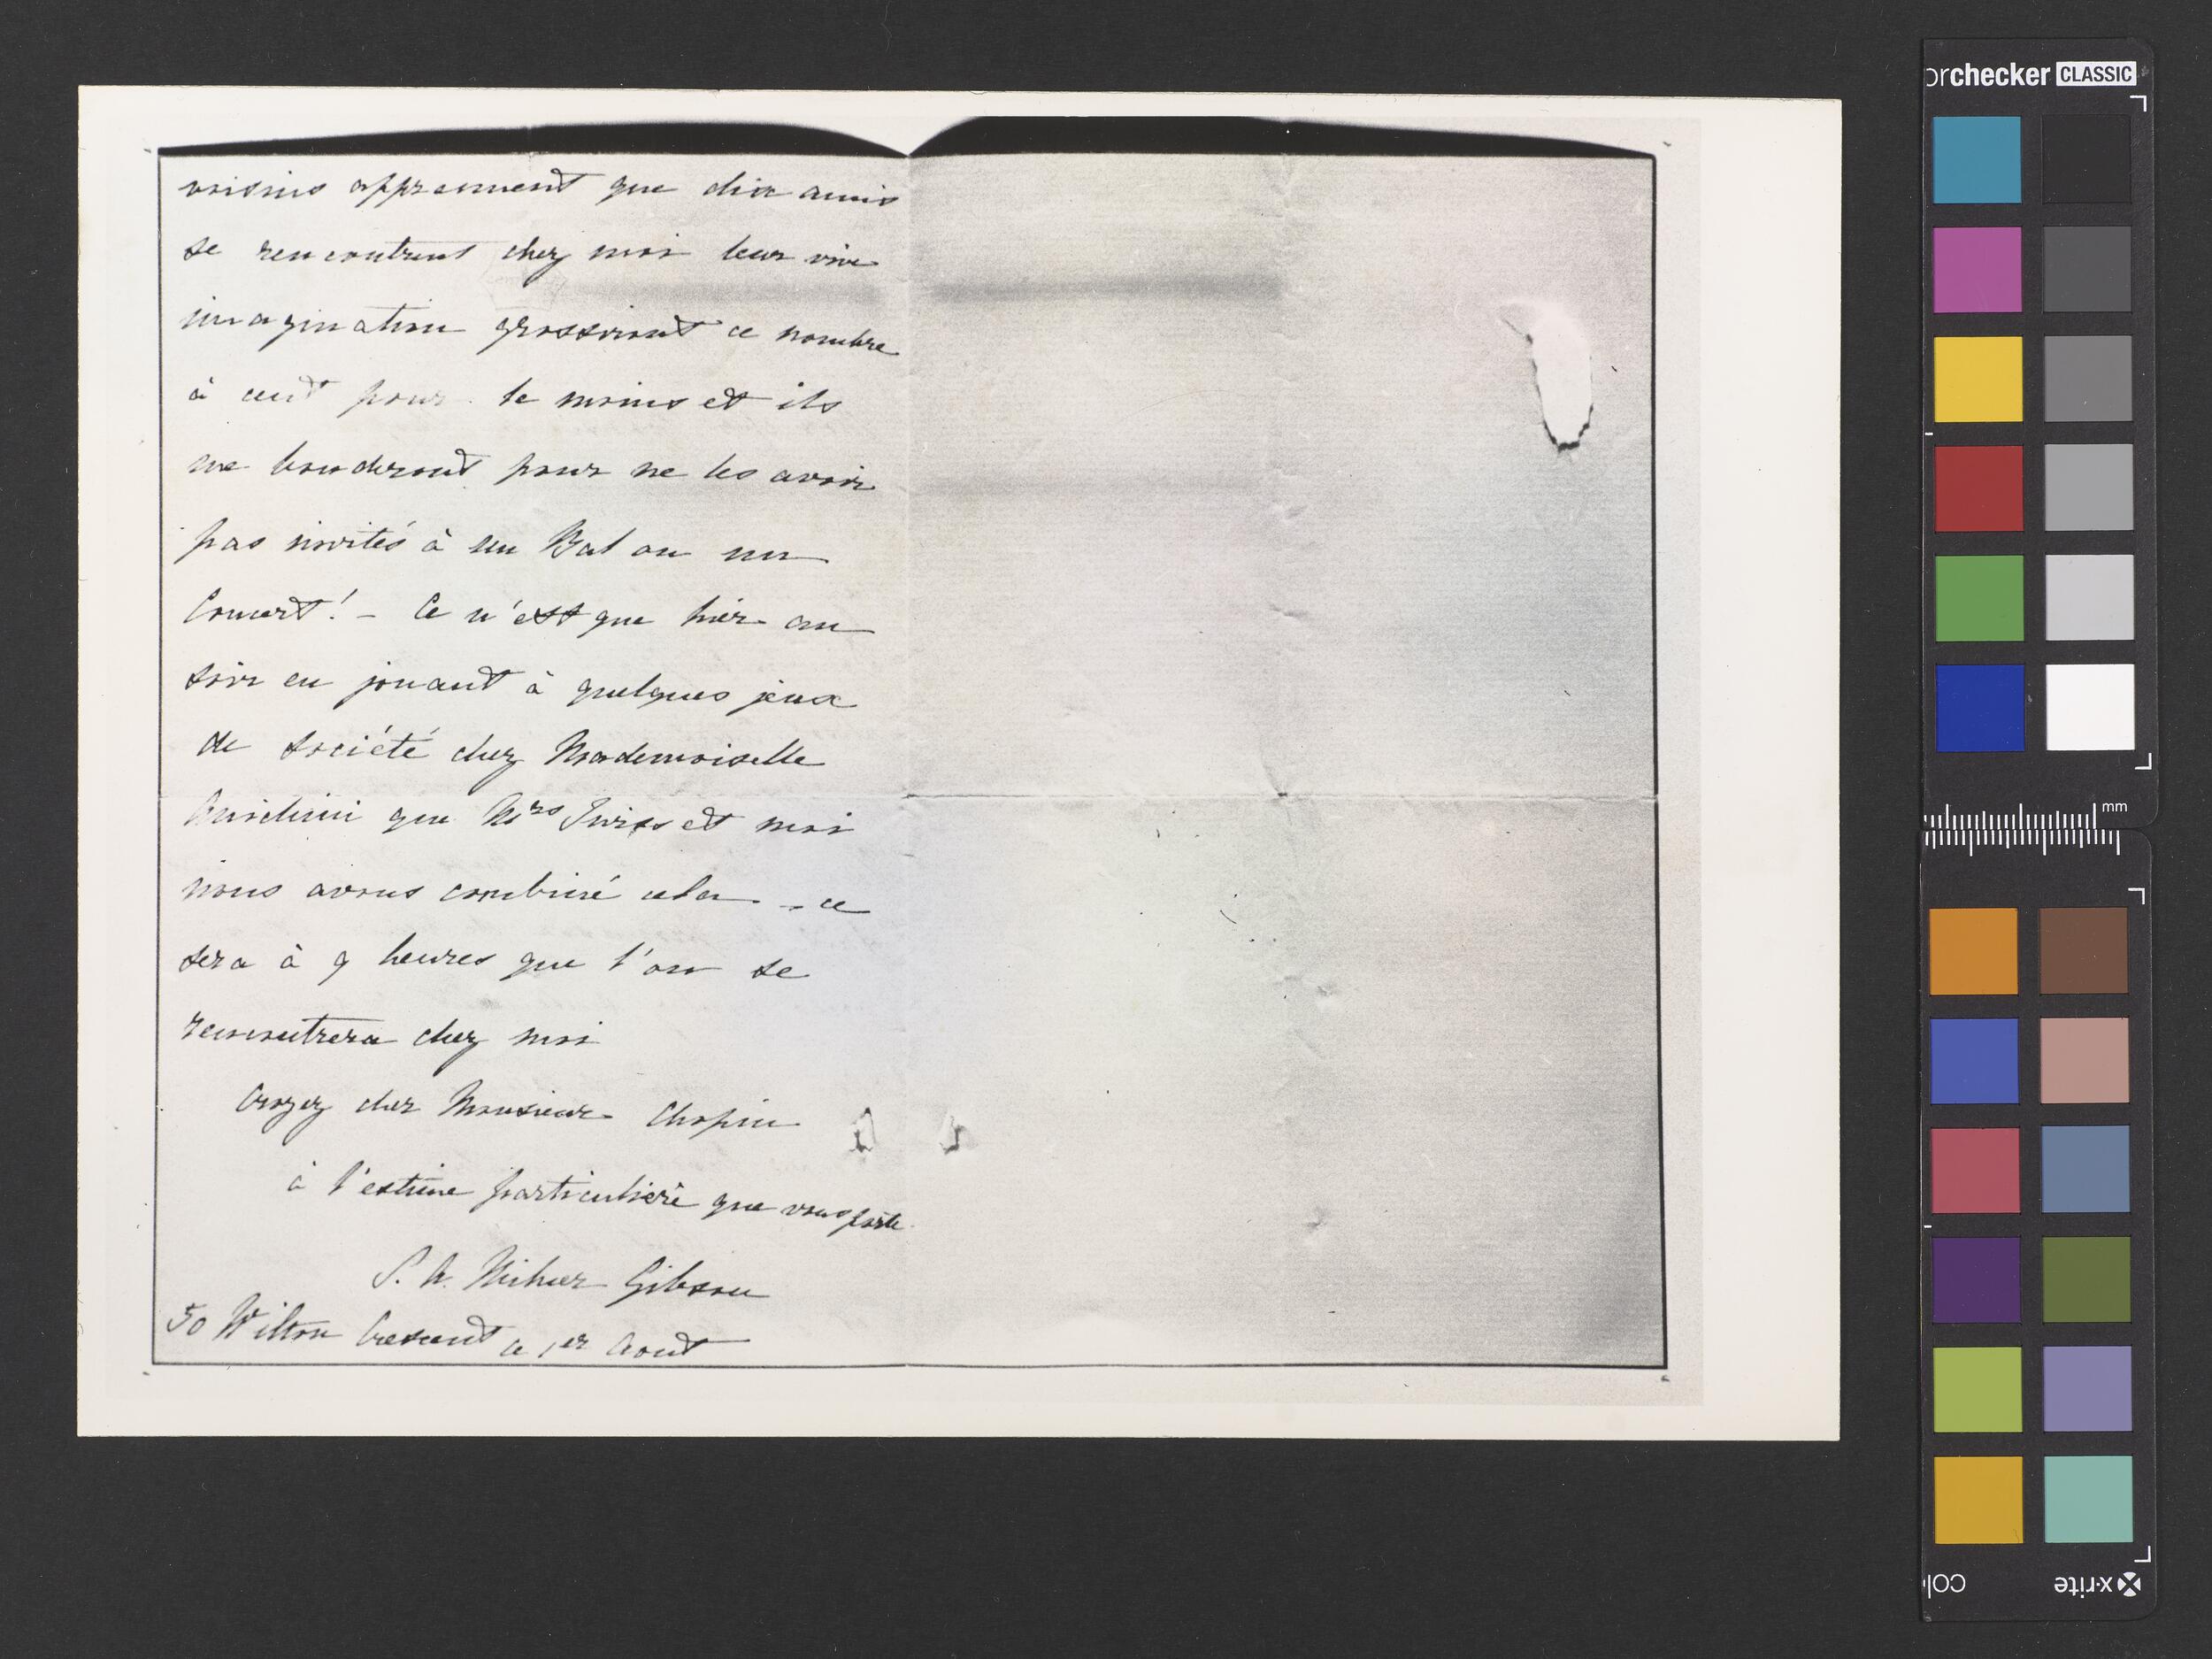 voisins apprennent que dix amis
se rencontrent chez moi leur vive
imagination grossiront ce nombre
à cent pour le moins et ils
me bouderont pour ne les avoir
pas invités à un Bal ou un
Concert! - Ce n'est que hier au
soir en jouant à quelques jeux
de société chez Mademoiselle
que Mrs et moi
nous avons combiné cela - ce
sera à 9 heures que l'on se
rencontrera chez moi
Croyez cher Monsieur Chopin
à l'estime particulière que vous porte
S. A. Milner Gibson
50 Wilton Crescent ce 1er Aout
orchecker CLASSIC
mm
x-rite
col